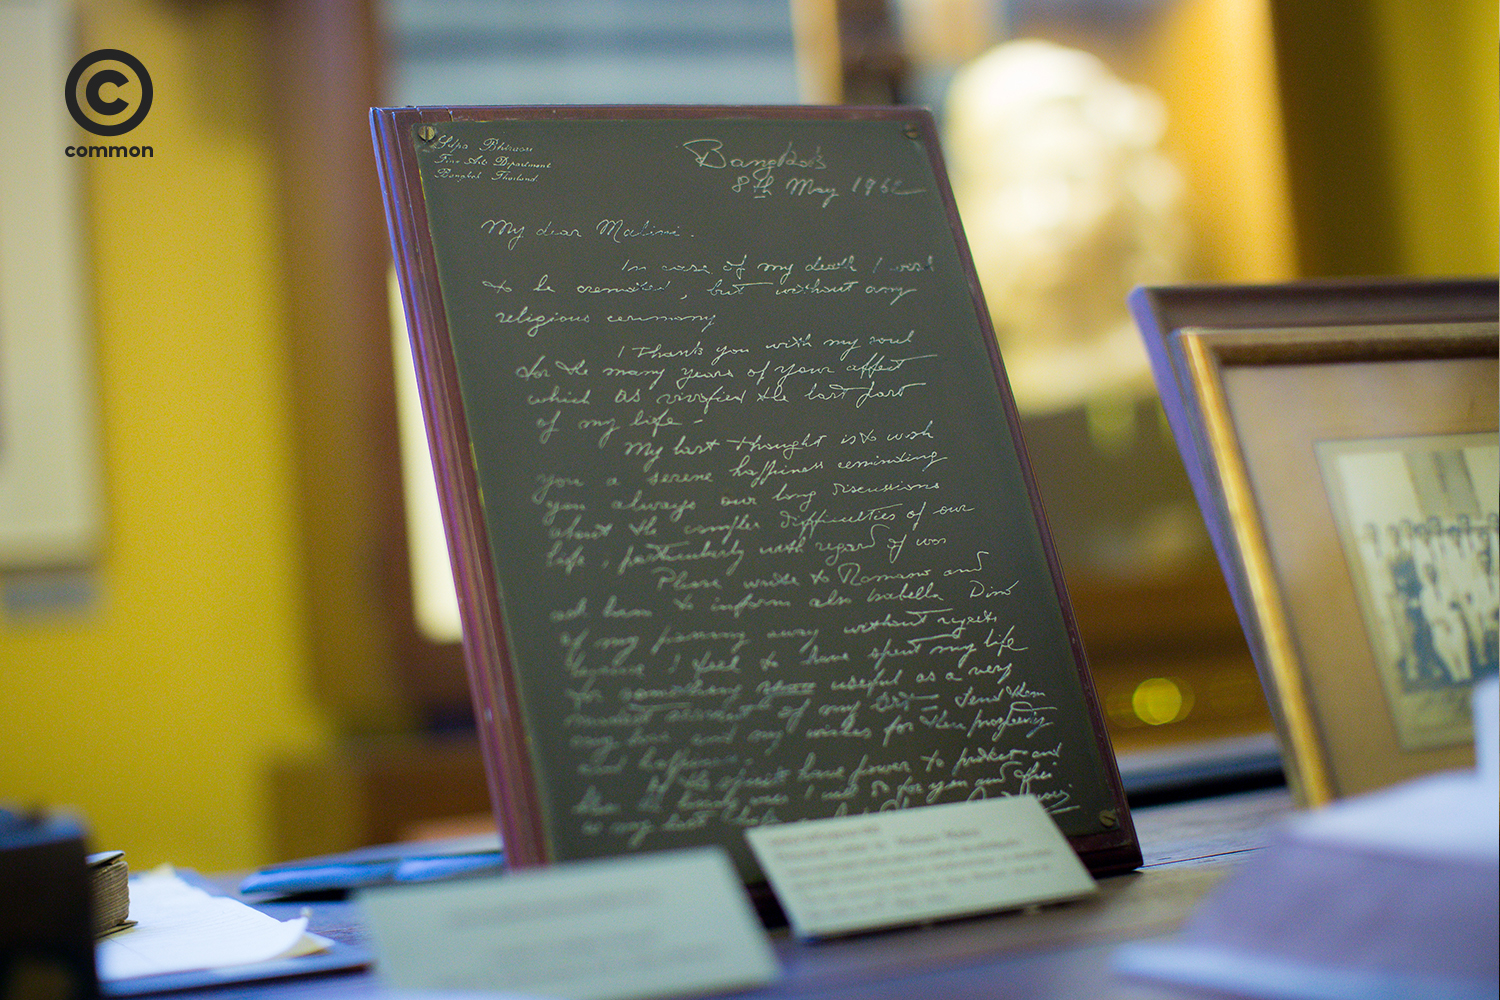 common
Silpa Bhirasri
Fine Arts Department
Bangkok Thailand.
Bangkok
8th May 1962
My dear Malini.
In case of my death I wish
to be cremated, but without any
religious ceremony
I thank you with my soul
for the many years of your affect
which as vivified the last part
of my life -
My last thought is to wish
you a serene happiness reminding
you always our long discussions
about the complex difficulties of our
life, particularly with regard of
Please write to Romano and
ask him to inform also Isabella Dino
of my passing away without
because I feel to have spent my life
for something useful as a very
modest servant of my art- Send them
my love and my wishes for their prosperity
and happiness.
If the spirit have power to protect and
I will do for you and